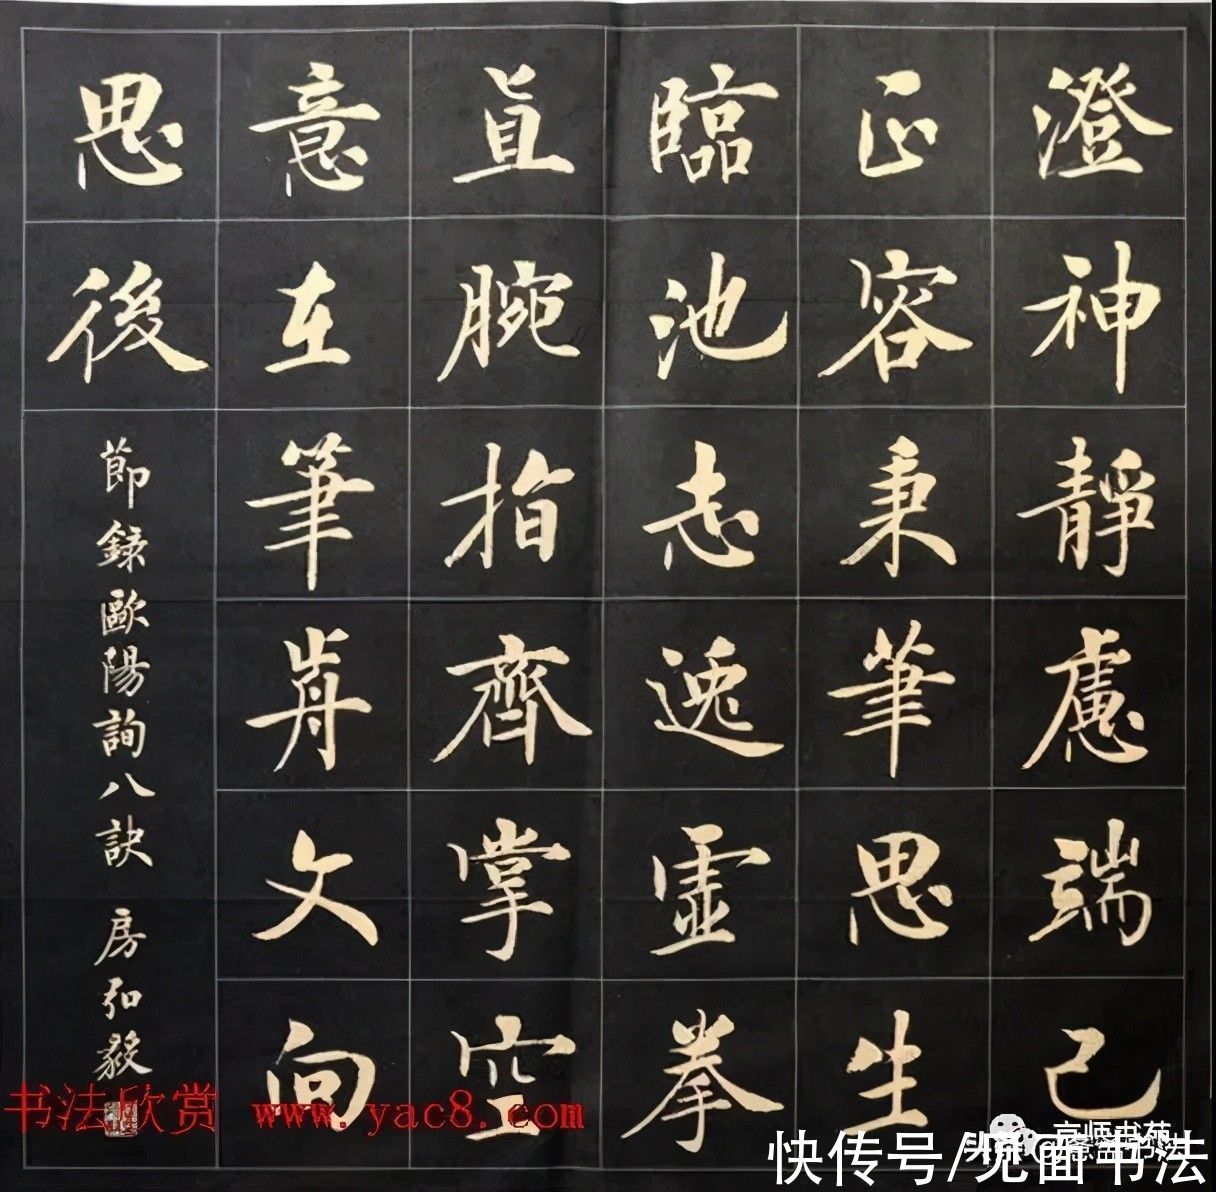 澄神靜慮端己
正容秉筆思生
臨池志逸虛拳
直腕指齊掌空
意在筆前文向
思後
節錄歐陽詢八訣 房弘毅
书法欣赏 www.yac8.com
快传号/见面书法